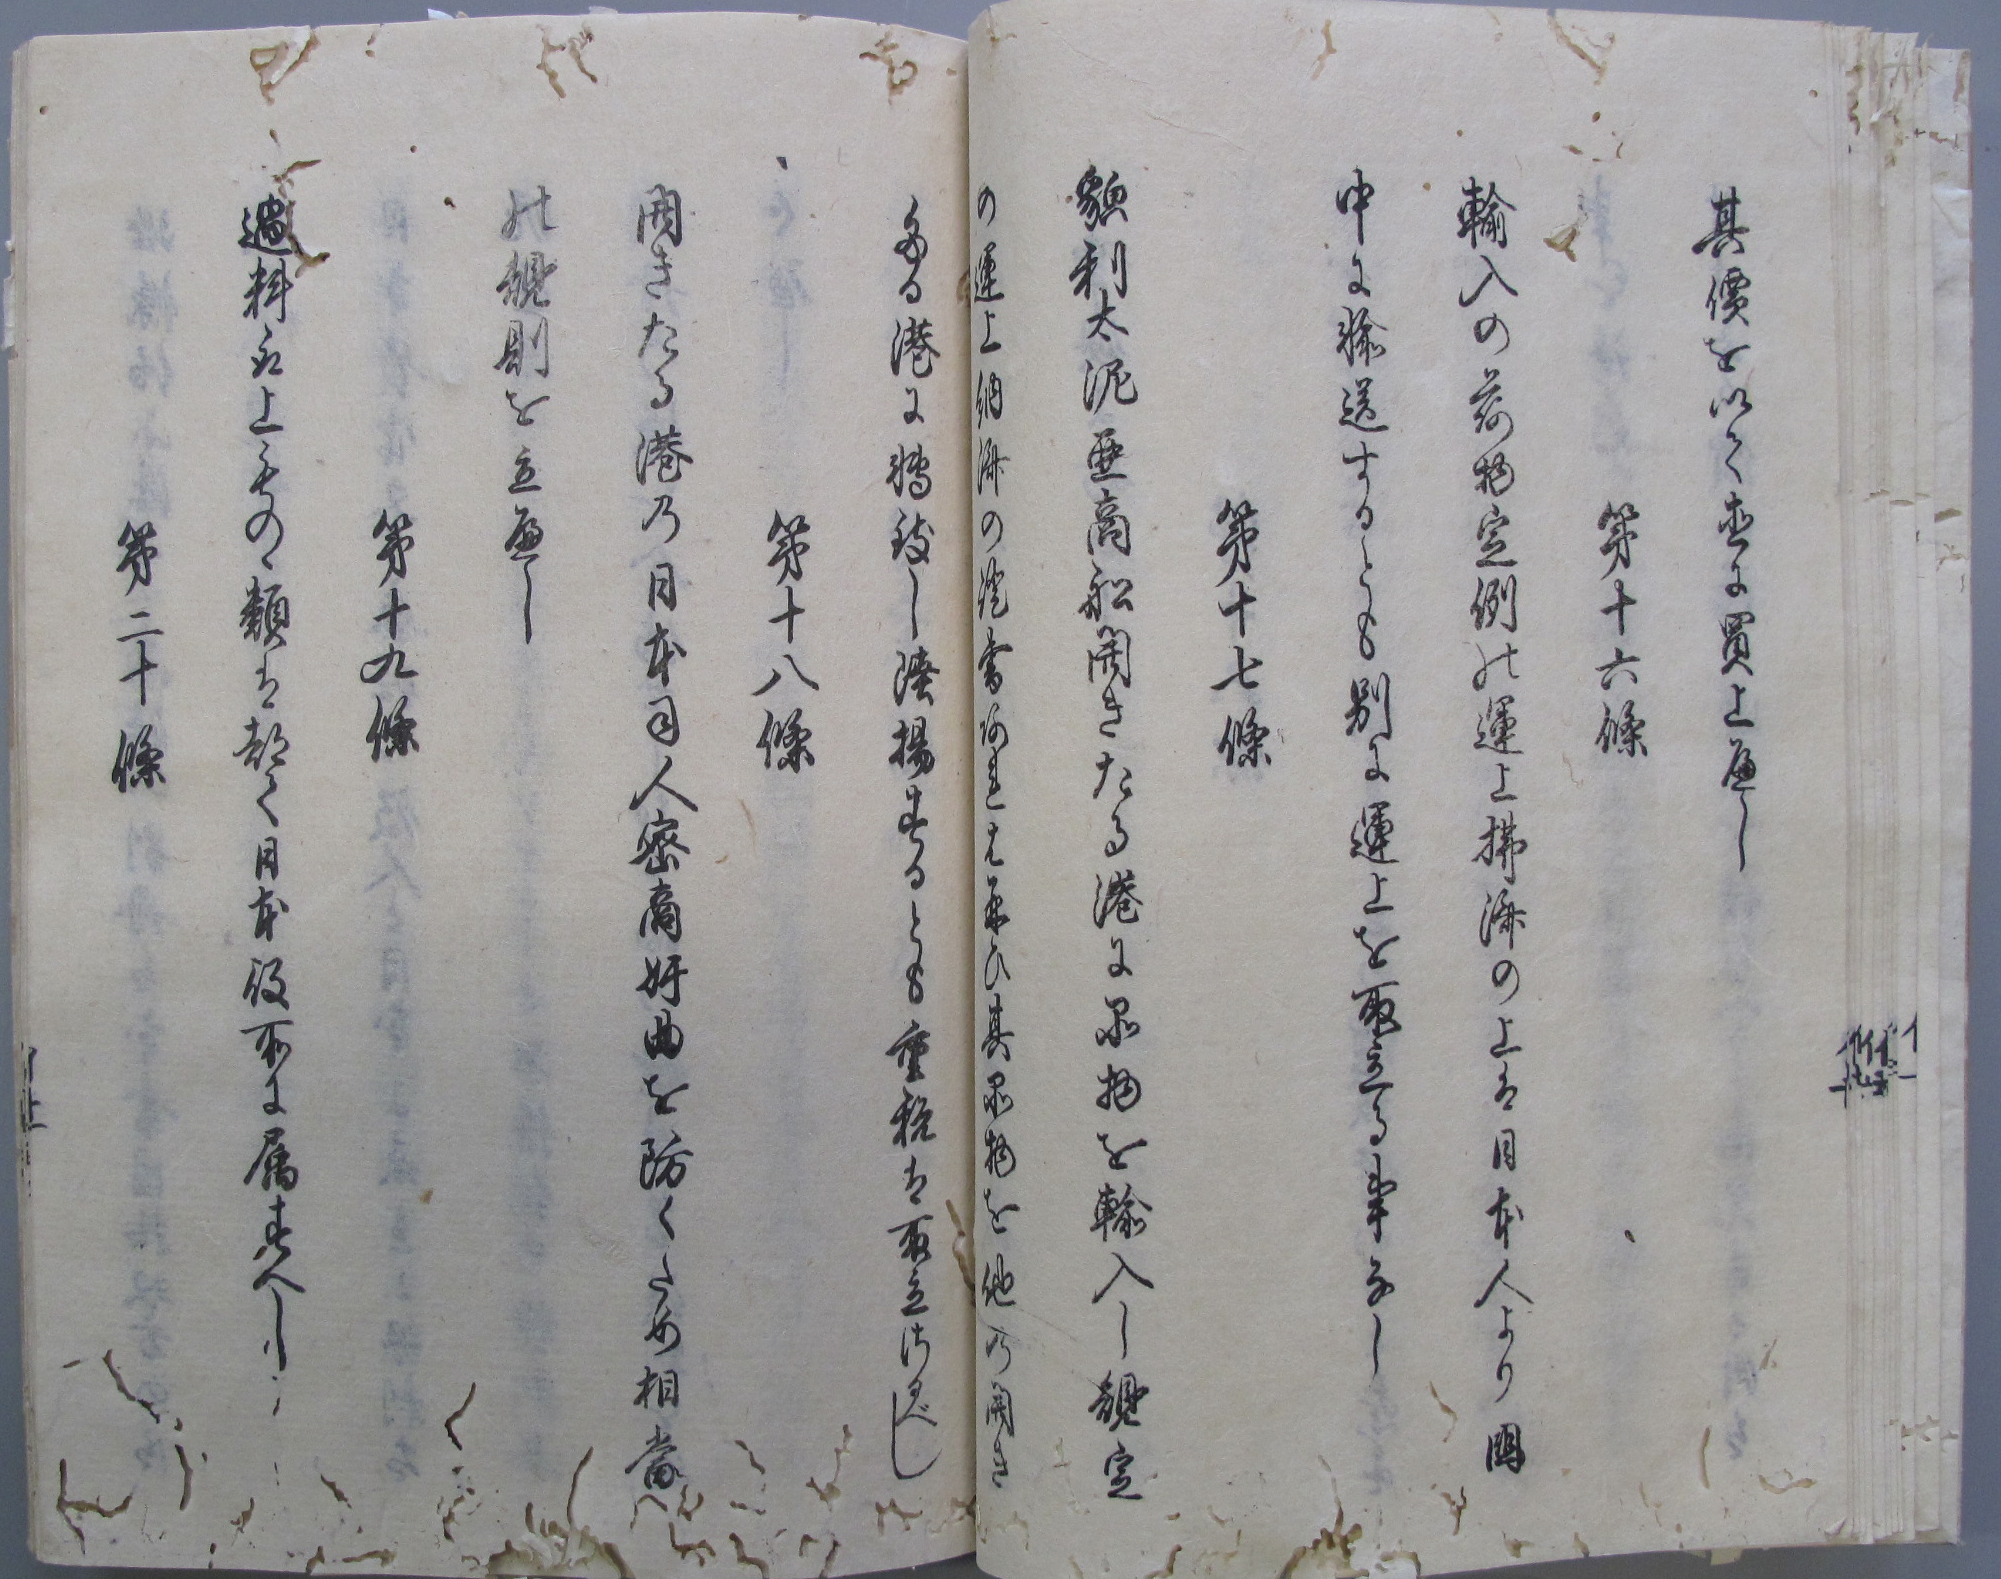 其價を以て直に買上へし
第十六條
輸入の荷物定例の運上拂濟の上は日本人より國
中に輸送するとも別に運上を取立る事なし
第十七條
貌利太泥亜商船開きたる港に品物を輸入し規定
の運上納濟の證書あれは再ひ其品物を他の開き
たる港に轉致し陸揚するとも重税は取立さるべし
第十八條
開きたる港の日本司人密商奸曲を防くため相當
の規則を立へし
第十九條
過料取上ものゝ類は都て日本役所に属すへし
第二十條